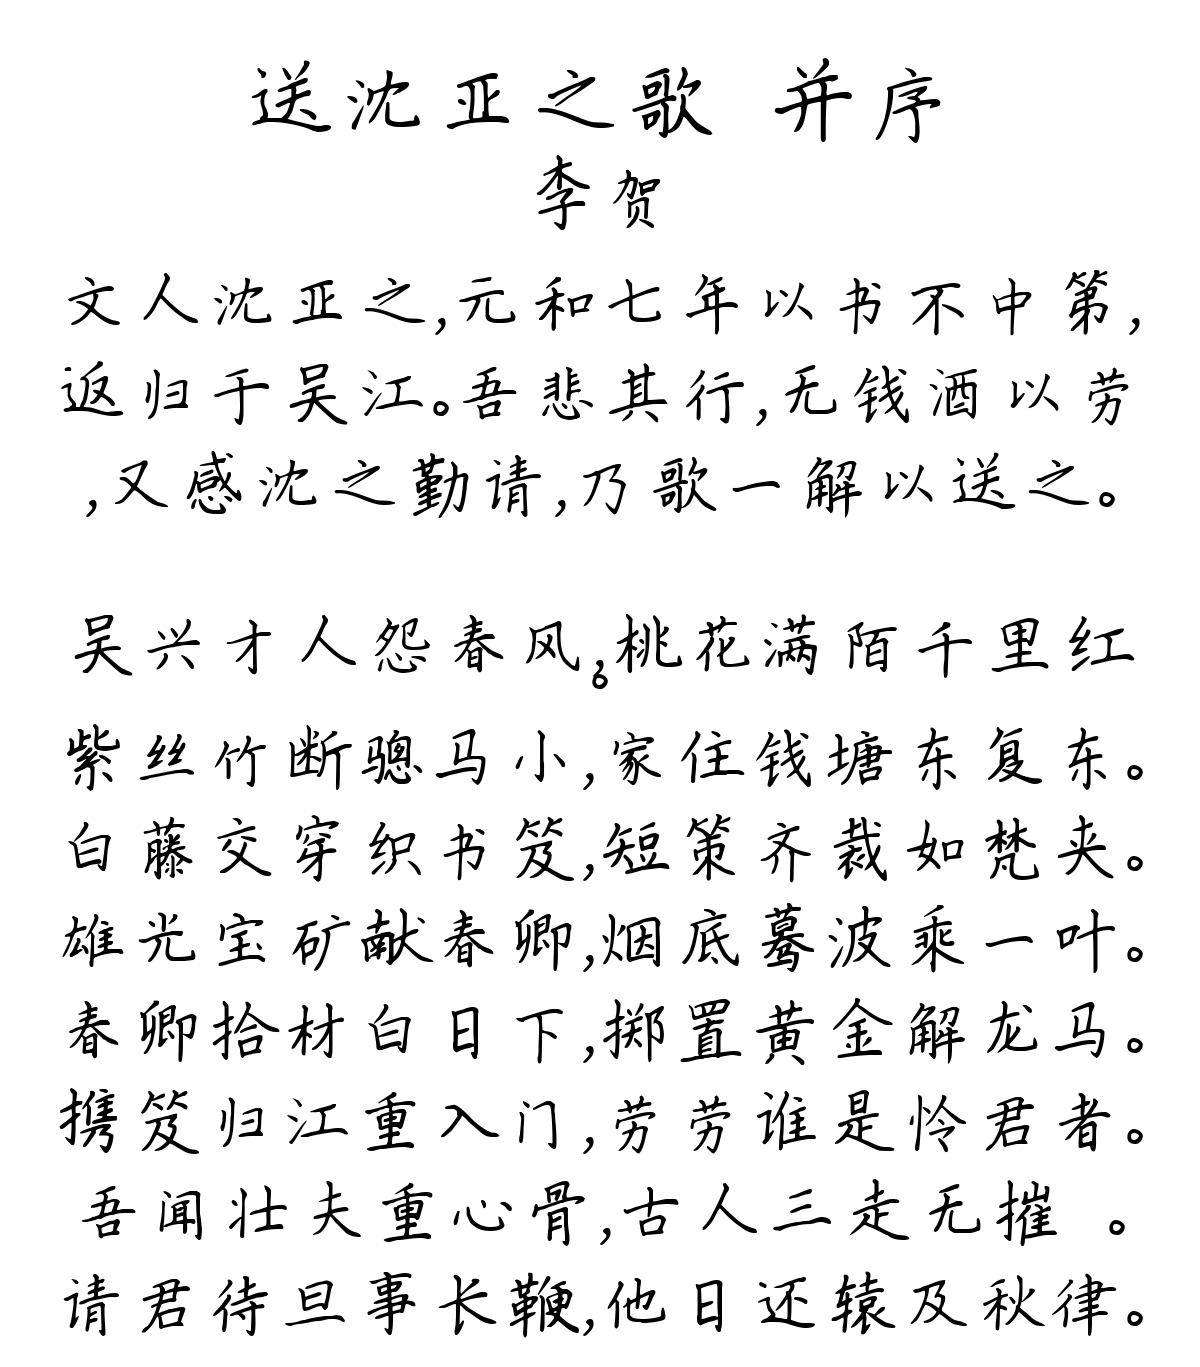 送沈亚之歌 并序
李贺
文人沈亚之,元和七年以书不中第,
返归于吴江。吾悲其行,无钱酒以劳
,又感沈之勤请,乃歌一解以送之。
吴兴才人怨春风,桃花满陌千里红。
紫丝竹断骢马小,家住钱塘东复东。
白藤交穿织书笈,短策齐裁如梵夹。
雄光宝矿献春卿,烟底蓦波乘一叶。
春卿拾材白日下,掷置黄金解龙马。
携笈归江重入门,劳劳谁是怜君者。
吾闻壮夫重心骨,古人三走无摧 。
请君待旦事长鞭,他日还辕及秋律。